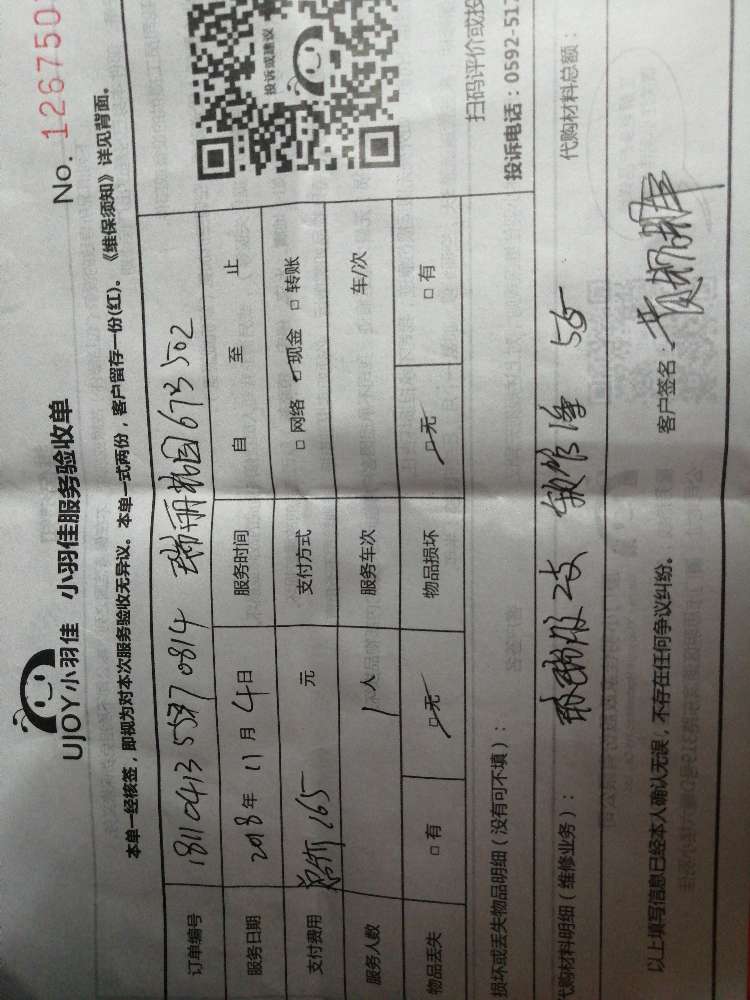 UJOY小羽佳 小羽佳服务验收单 No. 1267503
本单一经核签，即视为对本次服务验收无异议。本单一式两份，客户留存一份(红)。《维保须知》详见背面。
订单编号
服务日期 2018年 11月 4日 服务时间 自 至 止
支付费用 165 元 支付方式 □网络 □现金 □转账
服务人数 1人 服务车次 车/次
物品丢失 □有 □无 物品损坏 □无 □有
投诉或建议
扫码评价或投
投诉电话：0592-517
损坏或丢失物品明细（没有可不填）：
代购材料明细（维修业务）： 代购材料总额：
以上填写信息已经本人确认无误，不存在任何争议纠纷。 客户签名：